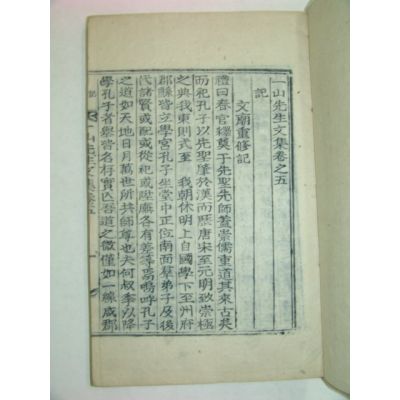 一山先生文集卷之五
記
文廟重修記
禮曰春官釋奠于先聖先師蓋崇儒重道其來古矣
而祀孔子以先聖肇於漢而熙唐宋至元明致崇極
之典我東則式至 我朝休明上自國學下至州府
郡縣皆立學宮孔子坐堂中正位南面羣弟子及後
代諸賢或配或從祀或陞廡各有差等焉嗚呼孔子
之道如天地日月萬世所共師尊也夫何叔季以降
學孔子者擧皆名存實亡吾道之微僅如一線咸郡
記
一山先生文集卷五